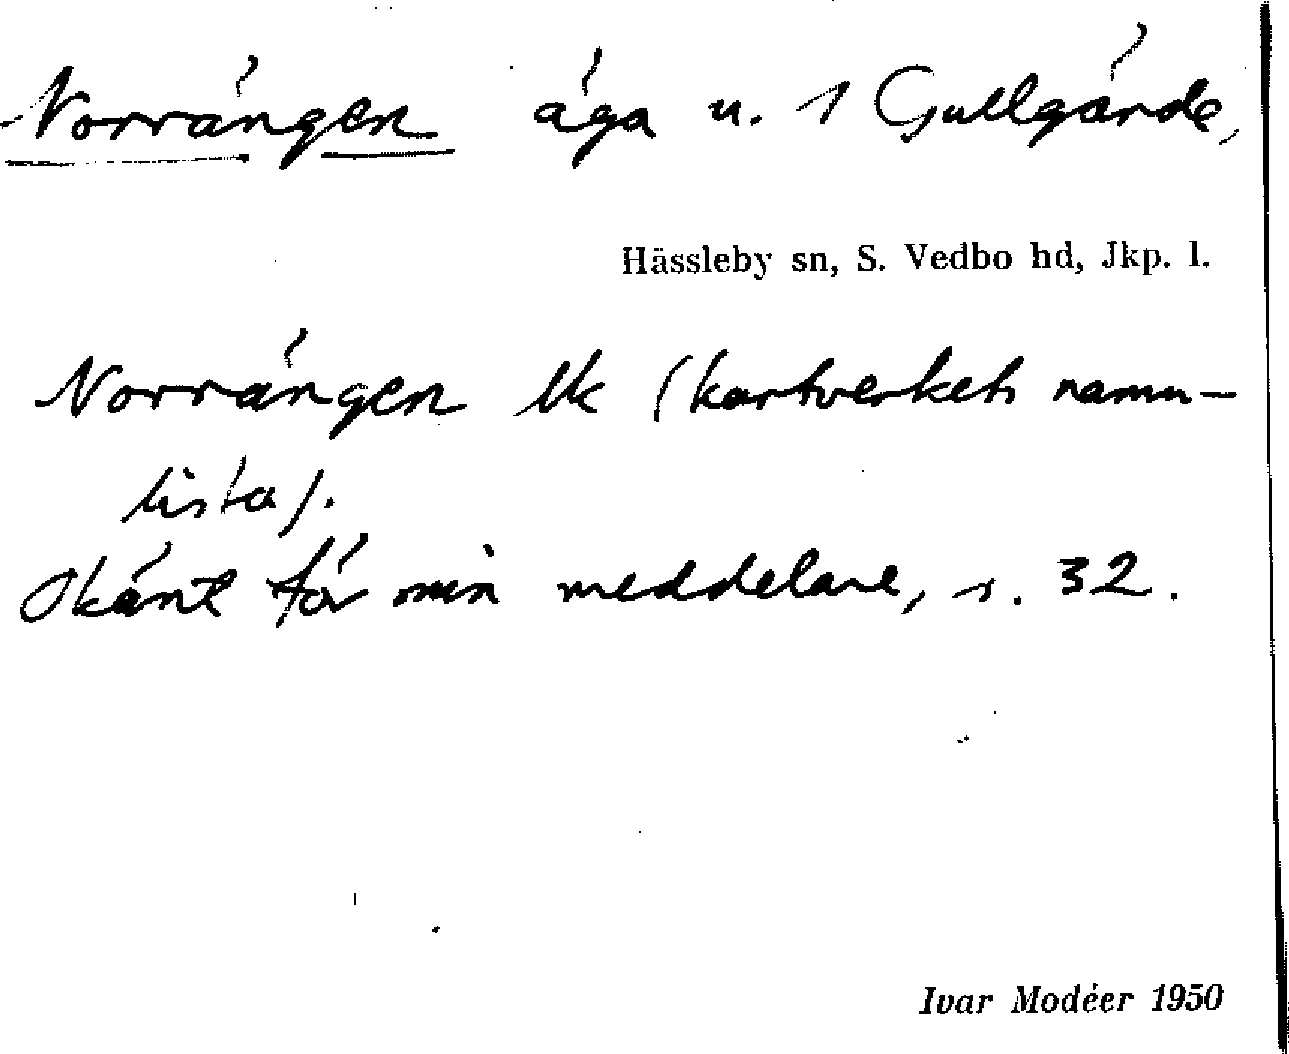 Norrängen äga u. 1 Gullgärde,
Hässleby sn, S. Vedbo hd, Jkp. l.
Norrängen ek (kartverkets namn-
lista).
Okänt för min meddelare, s. 32.
Ivar Modéer 1950